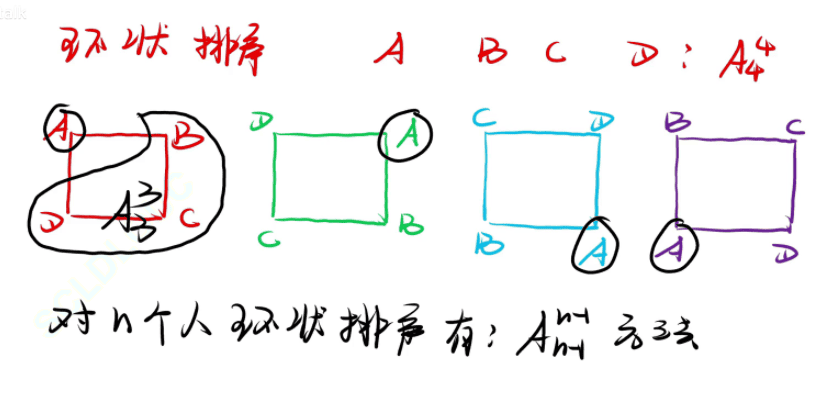 环状排序 A B C D : A₄⁴
A B D A C D B C
A₃³
D C C B B A A D
对n个人环状排序有: Aₙ₋₁ⁿ⁻¹ 方法